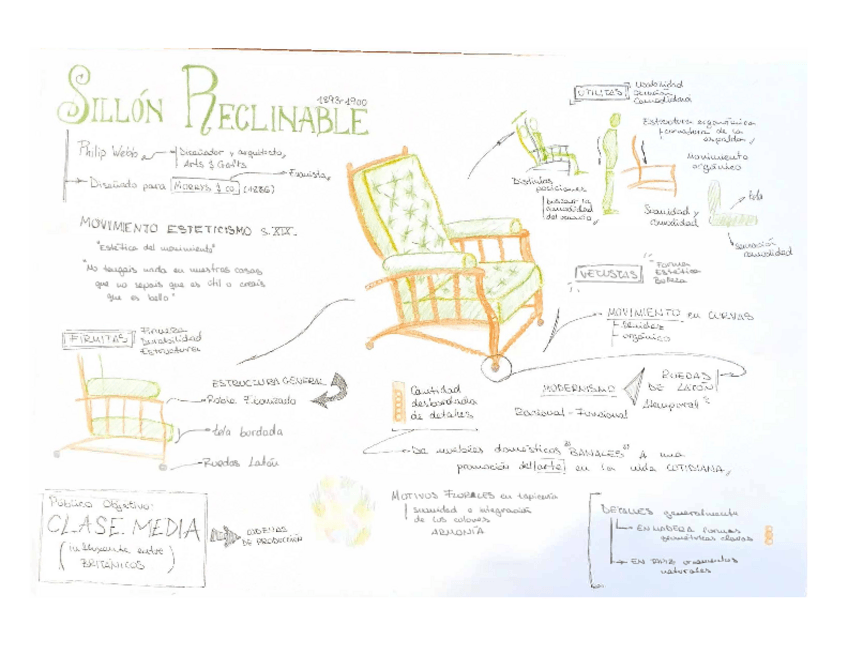 SILLÓN RECLINABLE
1893-1900
Philip Webb
Diseñador y arquitecto,
Arts & Crafts
Diseñado para MORRYS & CO (1886)
MOVIMIENTO ESTETICISMO S. XIX.
"Estética del movimiento"
"No tengáis nada en nuestras casas
que no sepáis que es útil o creáis
que es bello"
UTILITAS
Usabilidad
Comodidad
Distintas
posiciones
comodidad
del usuario,
Estructura ergonómica
de la
espalda,
Movimiento
orgánico
Suavidad y
comodidad
Tela
Sensación
comodidad
VETUSTAS
Forma
Estética
Belleza
MOVIMIENTO en CURVAS
Fluidez
orgánico
FIRMITAS
Firmeza
Durabilidad
Estructura
ESTRUCTURA GENERAL
Roble Ebonizado
tela bordada
Ruedas Latón
Cantidad
desbordada
de detalles
MODERNISMO
Racional - Funcional
RUEDAS
DE LATÓN
Atemporal?
De muebles domésticos "BANALES" A una
promoción del arte en la vida COTIDIANA,
Público Objetivo:
CLASE MEDIA
(influyente entre
BRITÁNICOS)
CADENAS
DE PRODUCCIÓN
MOTIVOS FLORALES en tapicería
suavidad e integración
de los colores
ARMONÍA
DETALLES generalmente
EN MADERA formas
geométricas claras
EN TAPIZ ornamentos
naturales